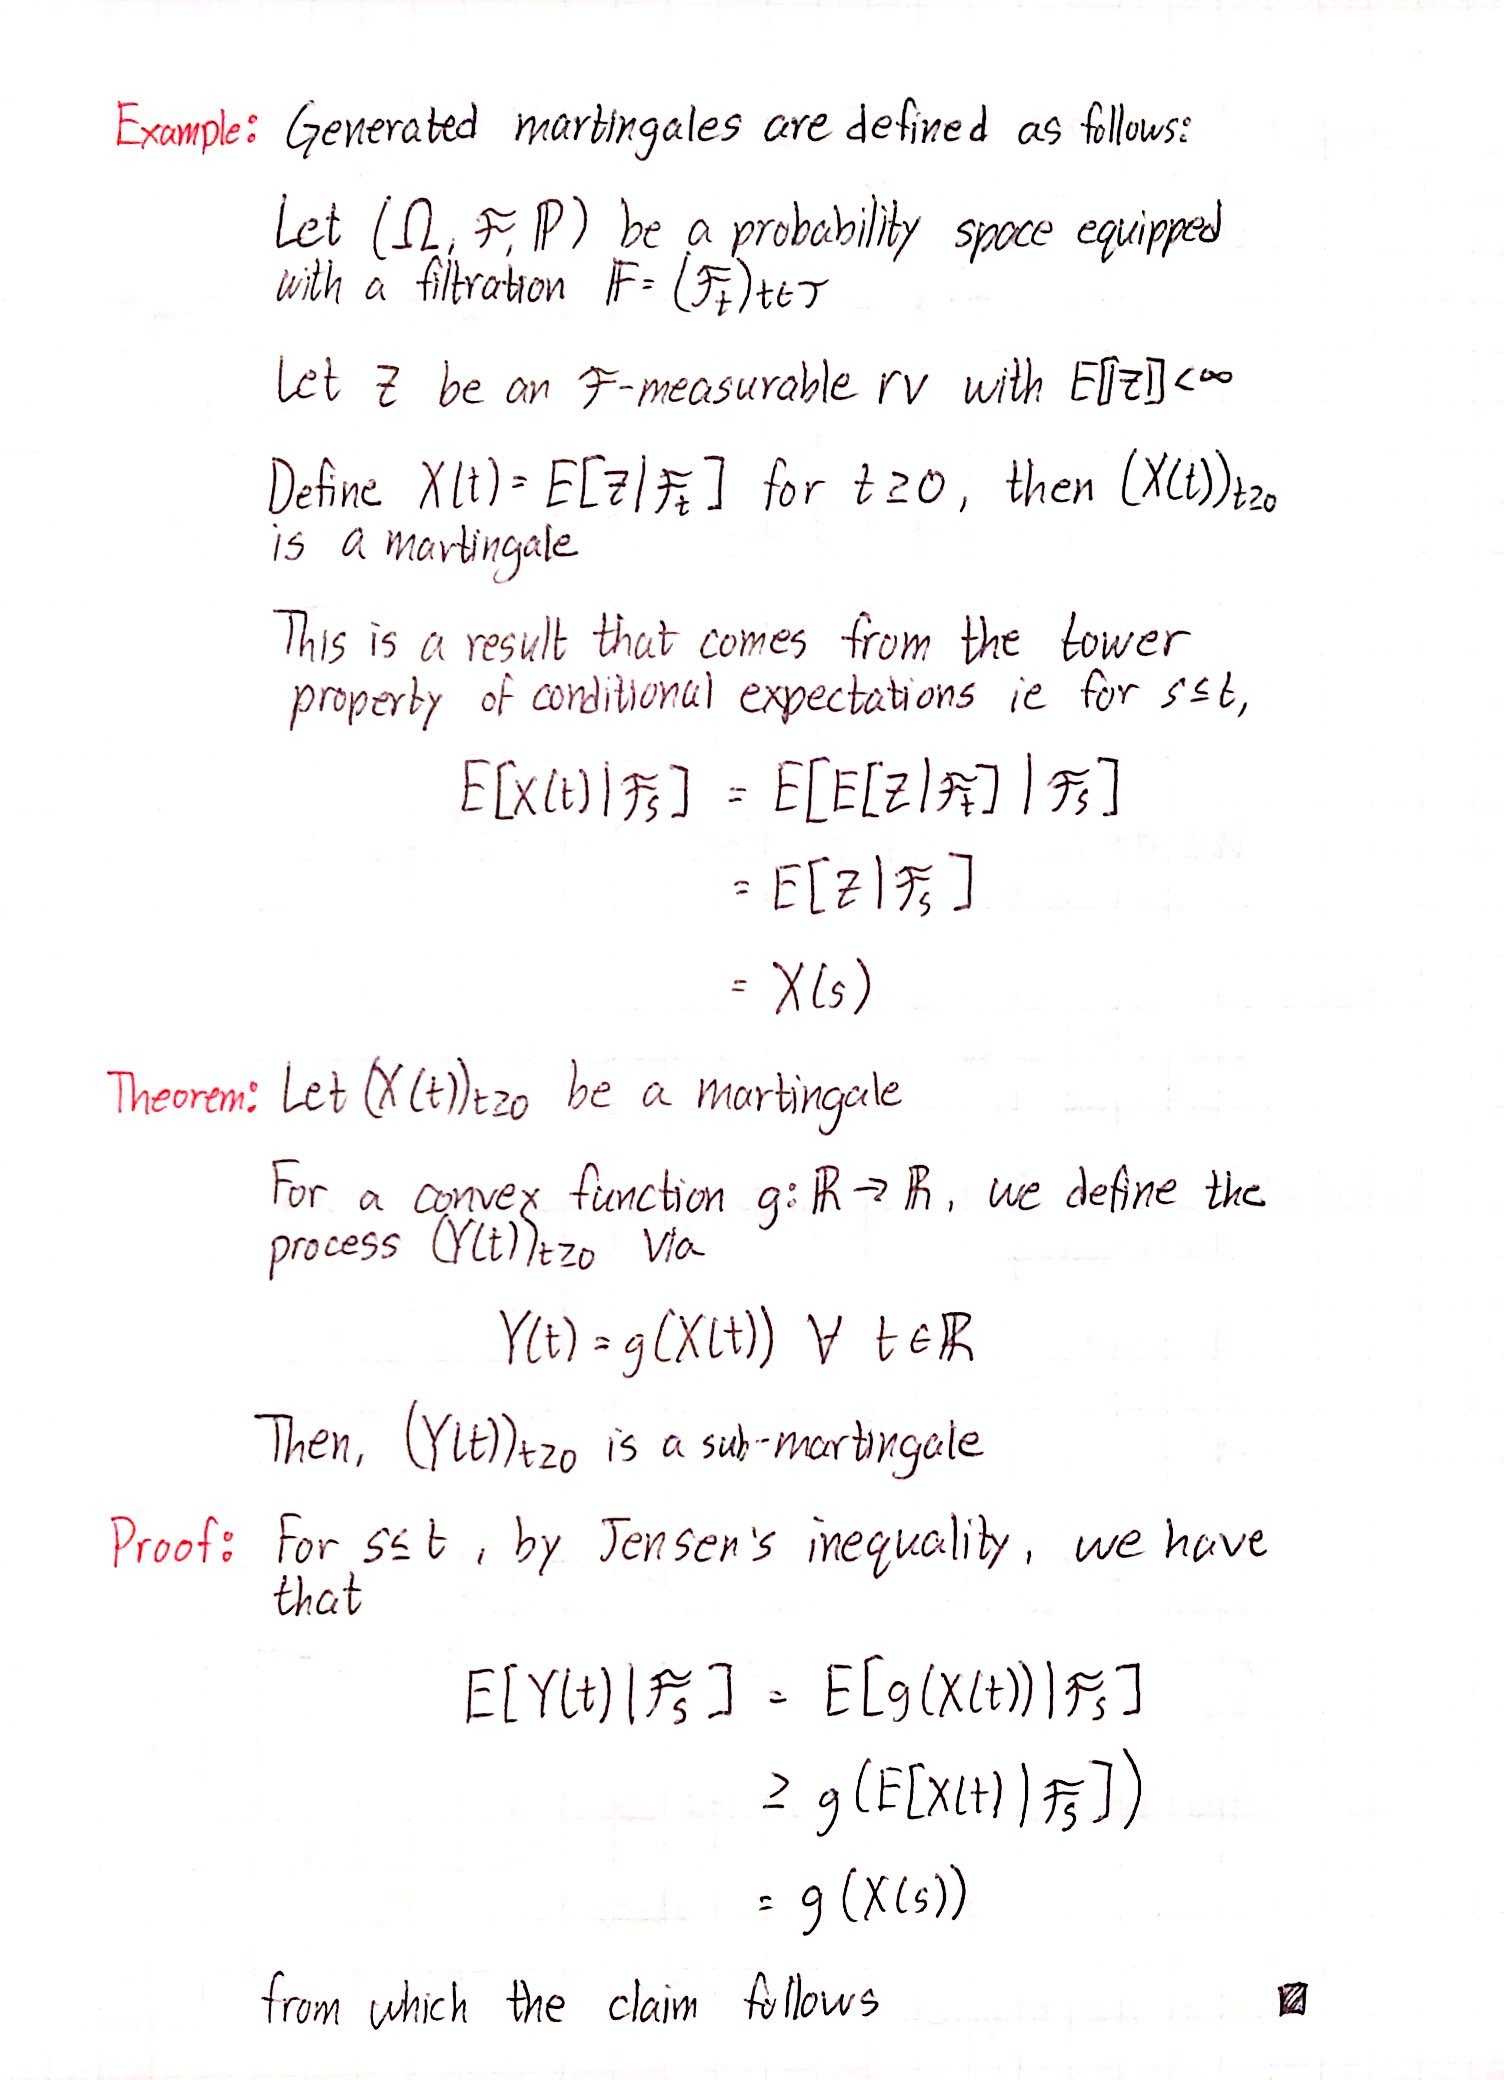 Example: Generated martingales are defined as follows:
Let (Ω, ℱ, ℙ) be a probability space equipped
with a filtration 𝔽 = (ℱ_t)_{t∈T}
Let Z be an ℱ-measurable rv with E[|Z|] < ∞
Define X(t) = E[Z|ℱ_t] for t ≥ 0, then (X(t))_{t≥0}
is a martingale
This is a result that comes from the tower
property of conditional expectations ie for s ≤ t,
E[X(t)|ℱ_s] = E[E[Z|ℱ_t] | ℱ_s]
= E[Z|ℱ_s]
= X(s)
Theorem: Let (X(t))_{t≥0} be a martingale
For a convex function g: ℝ → ℝ, we define the
process (Y(t))_{t≥0} via
Y(t) = g(X(t)) ∀ t ∈ ℝ
Then, (Y(t))_{t≥0} is a sub-martingale
Proof: For s ≤ t, by Jensen's inequality, we have
that
E[Y(t)|ℱ_s] = E[g(X(t))|ℱ_s]
≥ g(E[X(t)|ℱ_s])
= g(X(s))
from which the claim follows